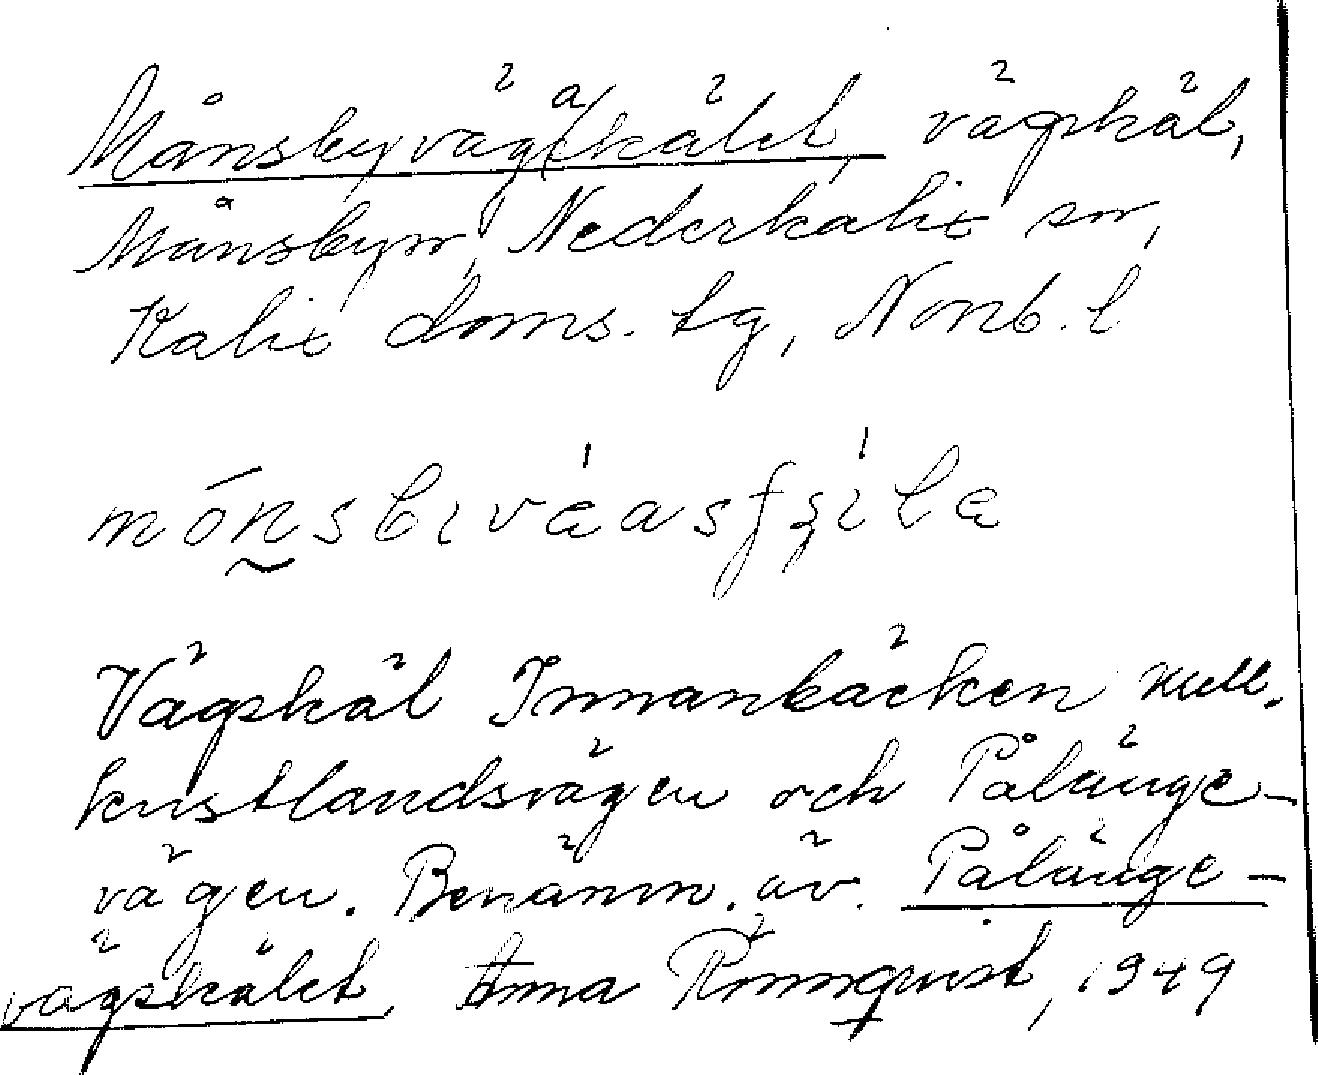 Månsbyvägaskälet, vägskäl,
Månsbyn, Nederkalix sn,
Kalix doms. tg, Norrb. l
Vägskäl Innanbäcken mell.
kustlandsvägen och Pålänge-
vägen. Benämn. äv. Pålänge-
vägskälet. Anna Rönnqvist, 1949